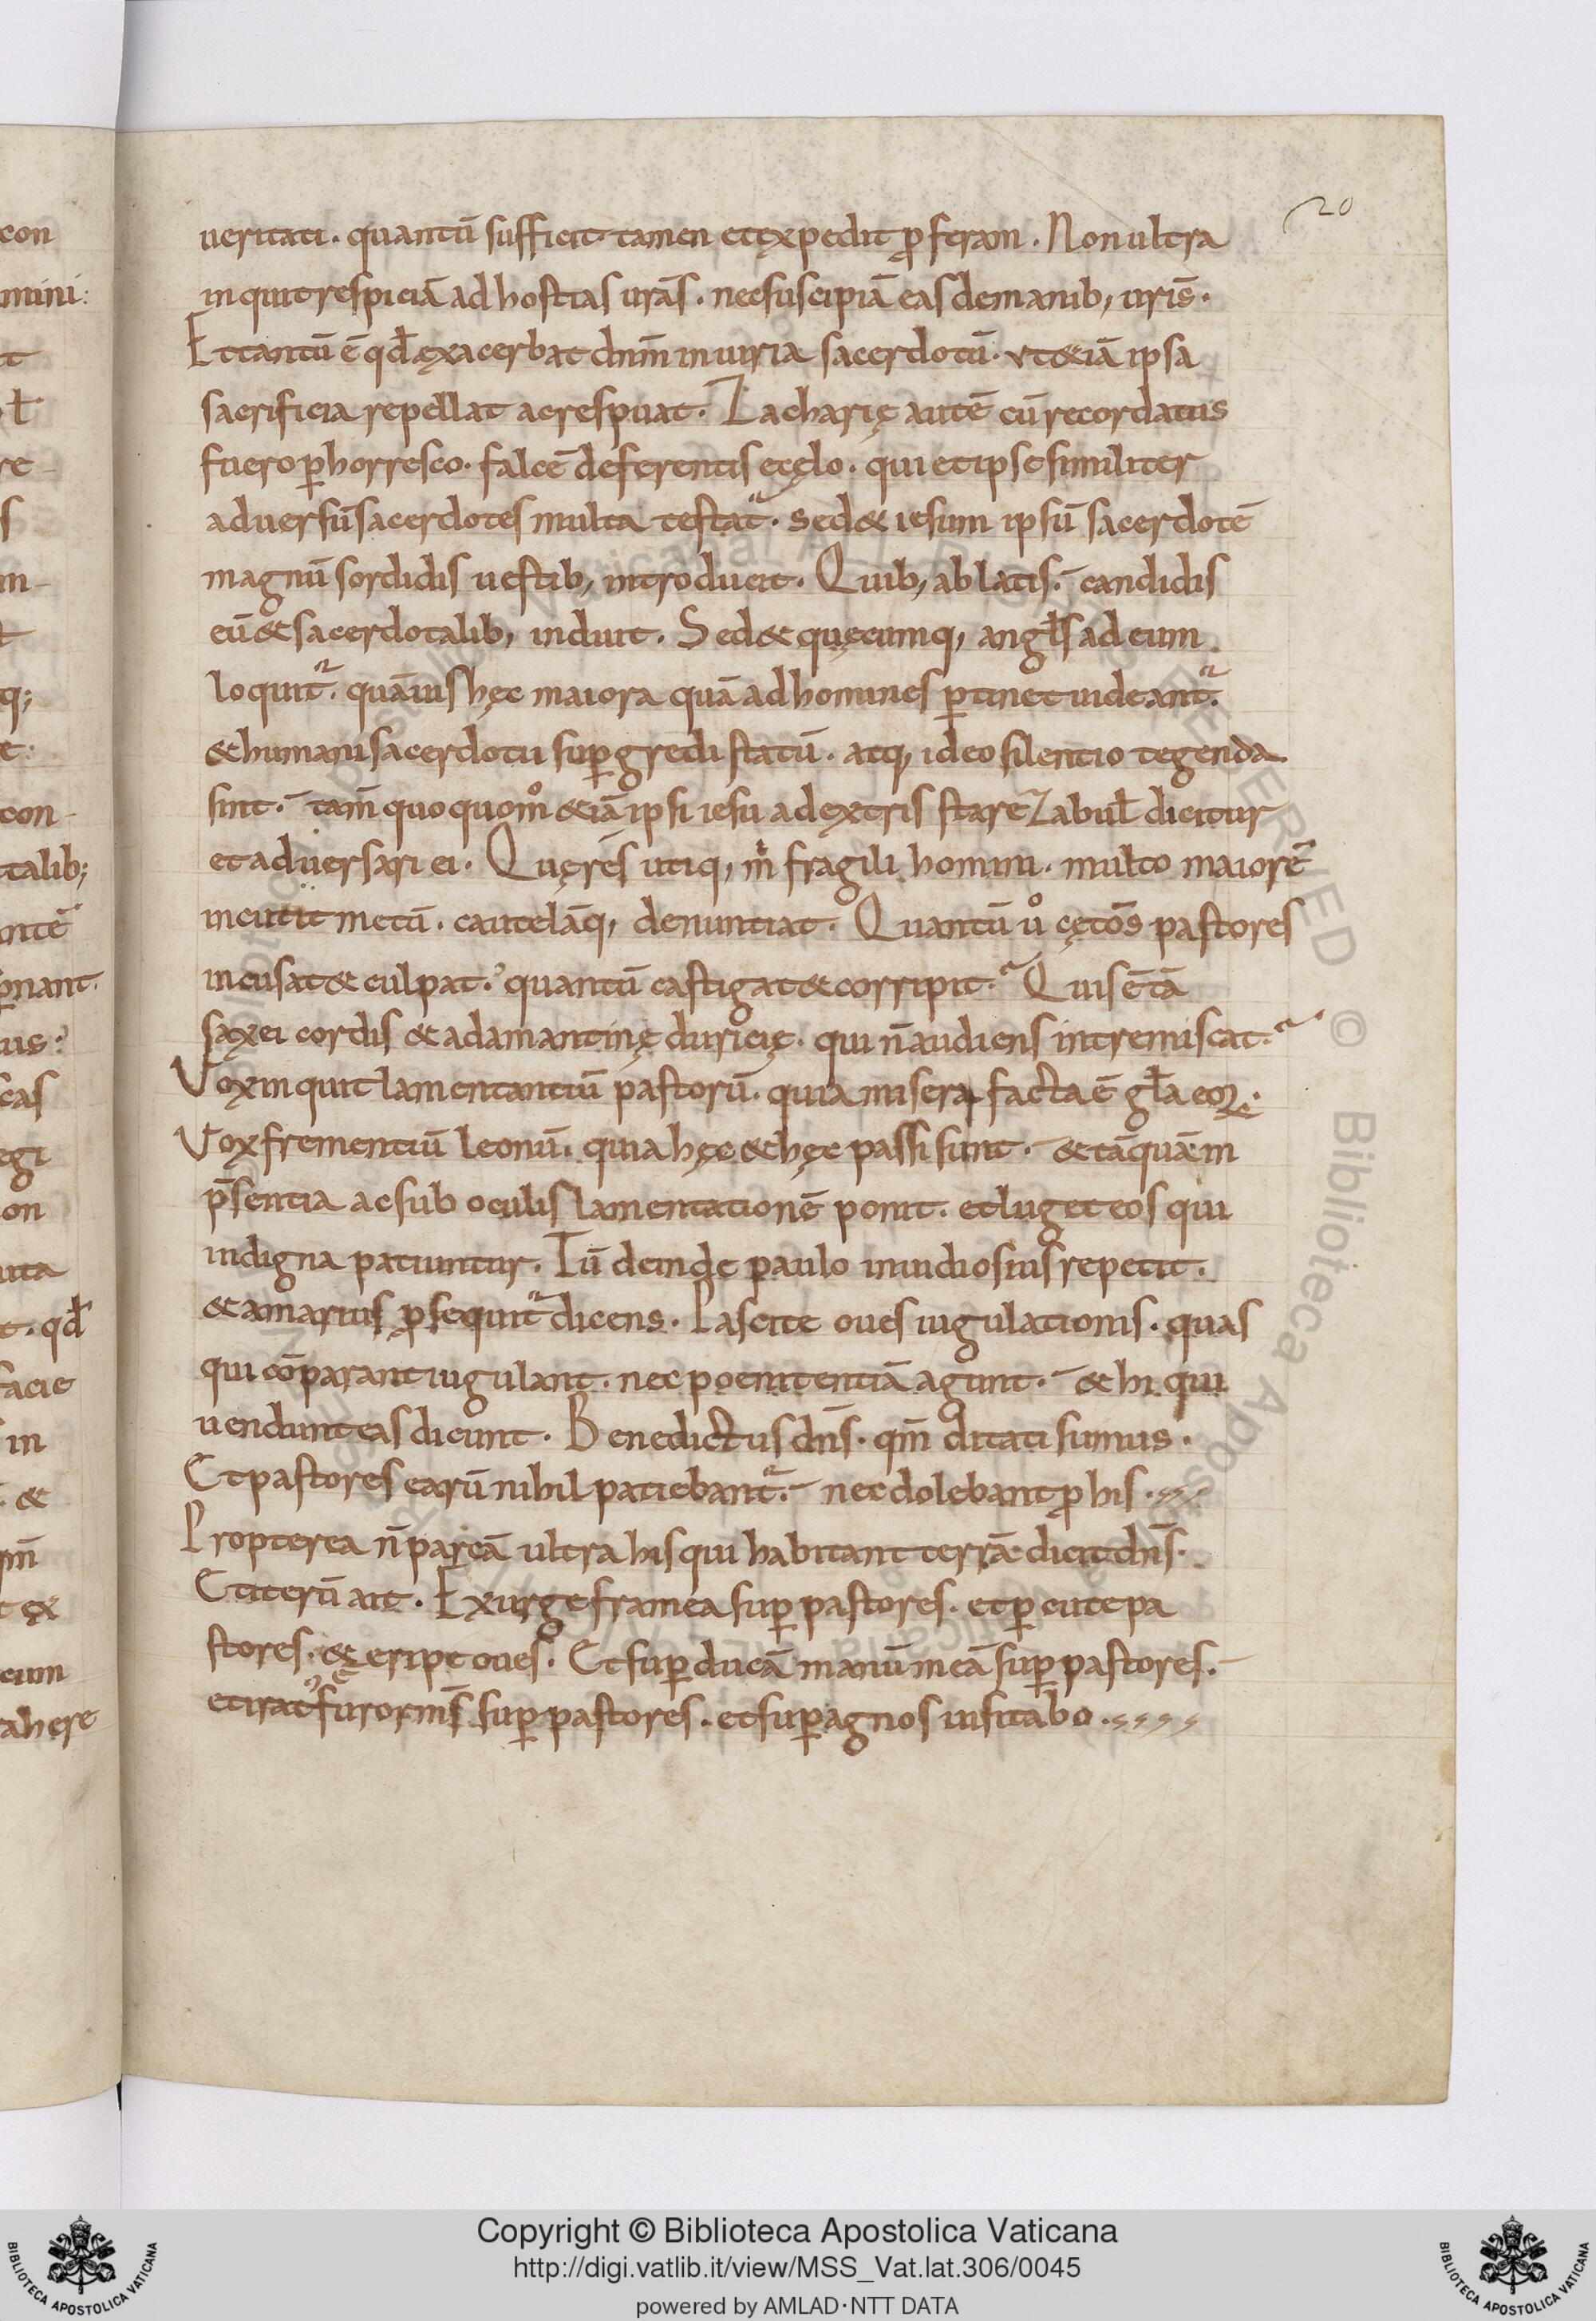 20
ueritati. quantū sufficit tamen et expedit ꝓferam. Non ultra
inquit respiciā ad hostias urās. nec suscipiā eas de manib; uris̄.
Et tantū ē qd̄ exacerbat dnm̄ iniuria sacerdotū. ut & iā ipsa
sacrificia repellat ac respuat. Zacharię autē cū recordatus
fuero ꝑhorresco. falcē deferentis e cęlo. qui et ipse similiter
aduersū sacerdotes multa testat᷑. sed & iesum ipsū sacerdotē
magnū sordidis uestib; introducit. Quib; ablatis. candidis
eū & sacerdotalib; induit. Sed & quęcumq; angl̄s ad eum
loquit᷑. quāuis hęc maiora quā ad homines ꝑtinet uideant᷑.
& humani sacerdotii suꝑgredi statū. atq; ideo silentio tegenda
sint. tam̄ quoquom̊ & iā ipsi iesu a dextris stare Zabul̄ dicitur
et aduersari ei. Quę res utiq; m̊ fragili homini. multo maiorē
incutit metū. cautelāq; denuntiat. Quantū ů cętos̄ pastores
incusat & culpat. quantū castigat & corripit. Quis ē tā
saxei cordis & adamantinę duricię. qui n̄ audiens intremiscat.
Vox inquit lamentantiū pastorū. quia misera facta ē gl̄a eoꝝ.
Vox frementiū leonū. quia hęc & hęc passi sunt. & tāquā in
p̄sentia ac sub oculis lamentationē ponit. et luget eos qui
indigna patiuntur. Tū deinde paulo inuidiosius repetit.
& amarius ꝓsequit᷑ dicens. Pascite oues iugulationis. quas
qui cōparant iugulant. nec poenitentiā agunt. & hi qui
uendunt eas dicunt. Benedictus dns̄. qm̄ ditati sumus.
Et pastores earū nihil patiebant᷑. nec dolebant ꝓ his.
Propterea n̄ parcā ultra his qui habitant terrā dicit dns̄.
Et iterū ait. Exurge framea suꝑ pastores. et ꝑcute pa
stores. & eripe oues. Et suꝑducā manū meā suꝑ pastores.
et irat᾽ ē furor m̄s suꝑ pastores. et suꝑ agnos uisitabo.
con
mini:
re
talib;
ntē
cas
egi
on
t. qd̄
facie
in
. &
qm̄
cum
ahere
Copyright © Biblioteca Apostolica Vaticana
http://digi.vatlib.it/view/MSS_Vat.lat.306/0045
powered by AMLAD·NTT DATA
BIBLIOTECA APOSTOLICA VATICANA
BIBLIOTECA APOSTOLICA VATICANA